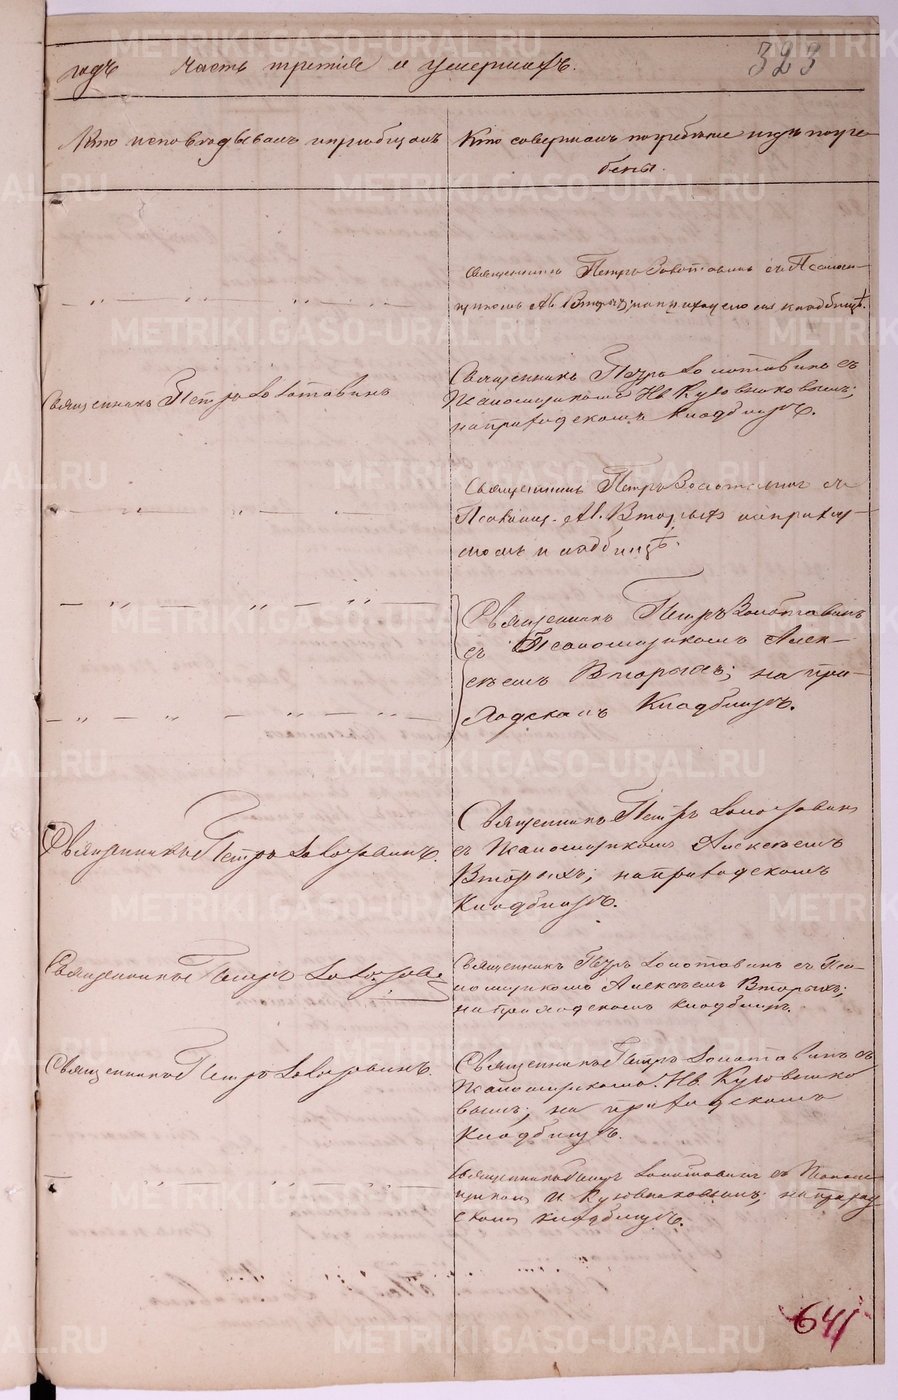 годъ часть третія о умершихъ. 323
Кто исповѣдывалъ и пріобщалъ
Кто совершалъ погребеніе и гдѣ погре-
бены.
Священникъ Петръ Золотавинъ съ Псалом-
щикомъ Ал. Вторыхъ; на приходскомъ кладбищѣ.
Священникъ Петръ Золотавинъ
Священникъ Петръ Золотавинъ съ
Псаломщикомъ Ив.
на приходскомъ кладбищѣ.
Священникъ Петръ Золотавинъ съ
Псаломщ. Ал. Вторыхъ на приход-
скомъ кладбищѣ.
Священникъ Петръ Золотавинъ
съ Псаломщикомъ Алек-
сѣемъ Вторыхъ; на при-
ходскомъ Кладбищѣ.
Священникъ Петръ Золотавинъ.
Священникъ Петръ Золотавинъ
съ Псаломщикомъ Алексѣемъ
Вторыхъ; на приходскомъ
Кладбищѣ.
Священникъ Петръ Золотавинъ
Священникъ Петръ Золотавинъ съ Пса-
ломщикомъ Алексѣемъ Вторыхъ;
на приходскомъ кладбищѣ.
Священникъ Петръ Золотавинъ.
Священникъ Петръ Золотавинъ съ
Псаломщикомъ Ив.
на приходскомъ
Кладбищѣ.
Священникъ Петръ Золотавинъ съ Псалом-
щикомъ на приход-
скомъ кладбищѣ.
641
METRIKI.GASO-URAL.RU